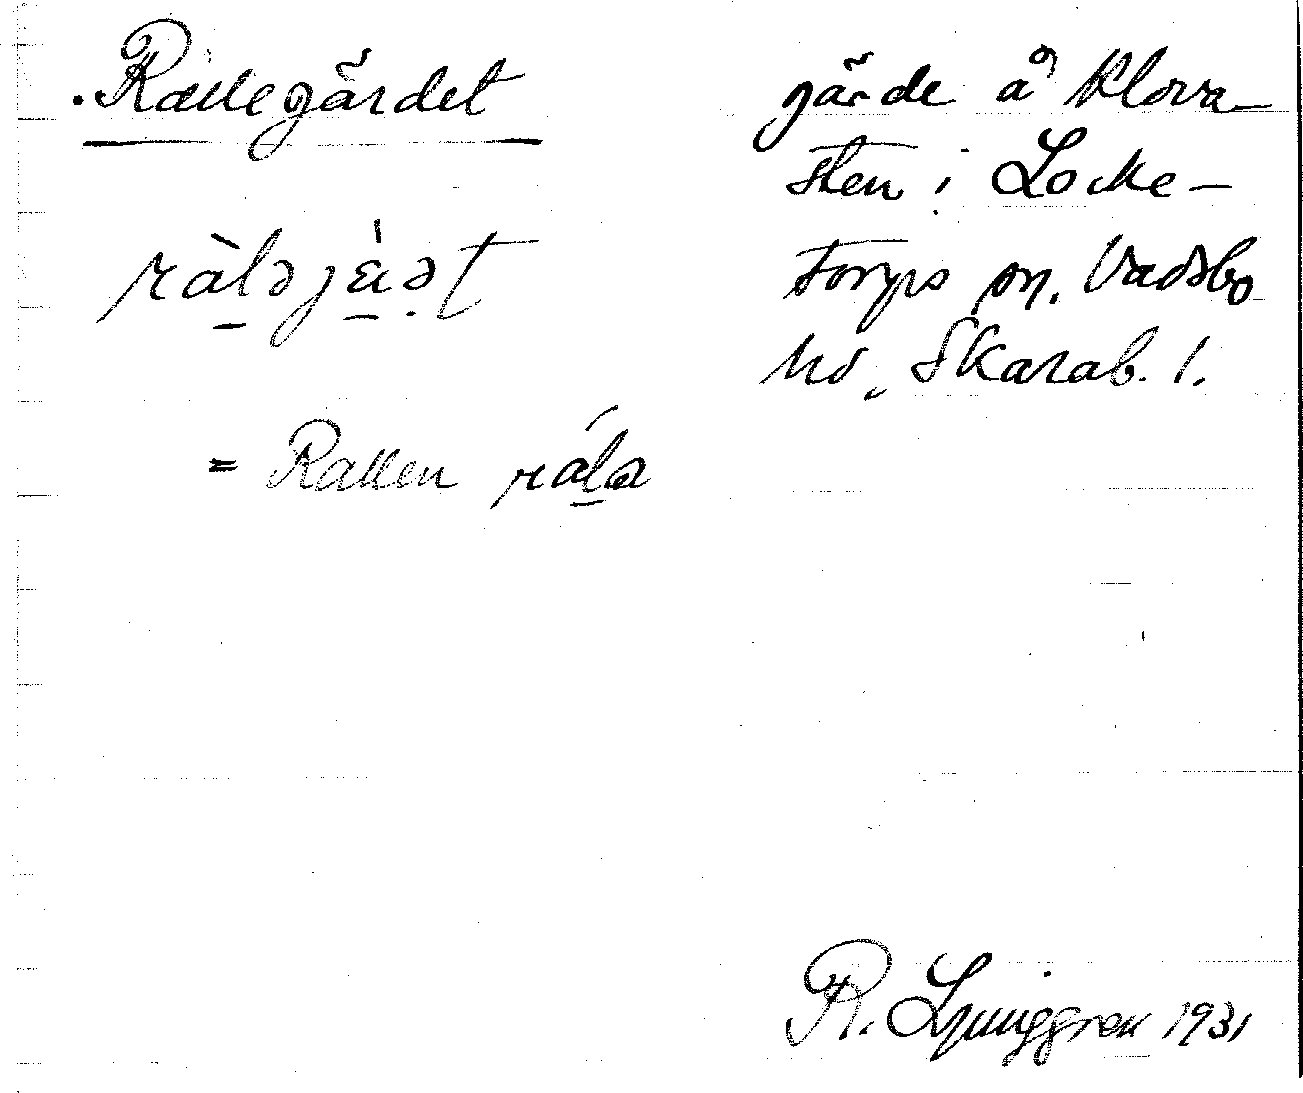 Rallegärdet
ràləjæ̀ət
= Rallen rála
gärde å Klova-
sten i Locke-
torps sn. Vadsbo
hd, Skarab. l.
R. Ljunggren 1931